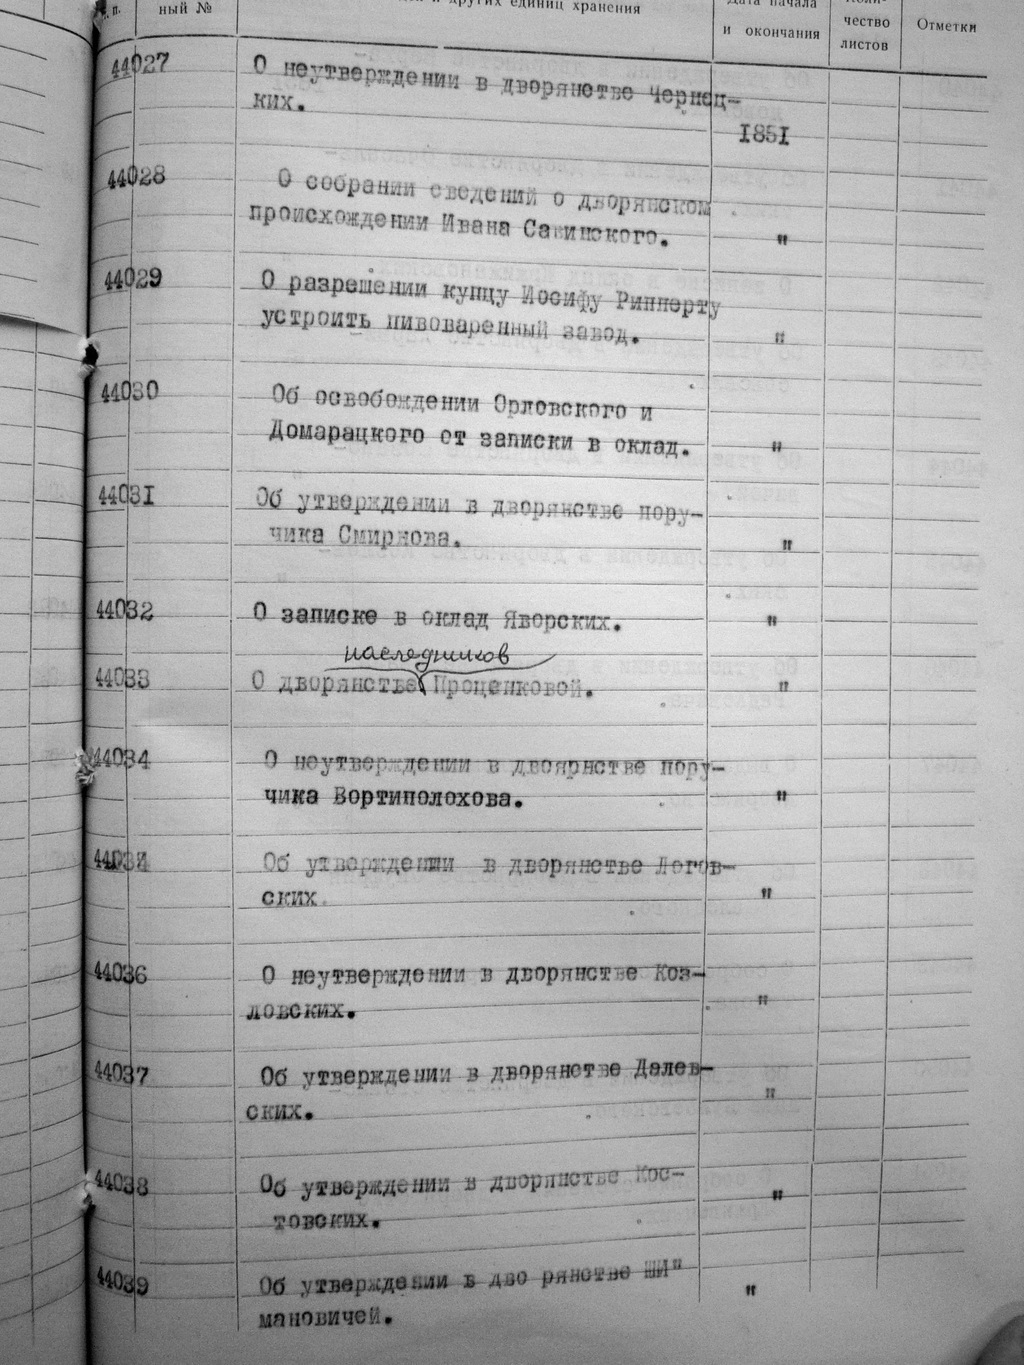 п.
ный №
и других единиц хранения
Дата начала
и окончания
чество
листов
Отметки
44027
О неутверждении в дворянстве Чернец-
ких.
1851
44028
О собрании сведений о дворянском
происхождении Ивана Савинского.
"
44029
О разрешении купцу Иосифу Рипперту
устроить пивоваренный завод.
"
44030
Об освобождении Орловского и
Домарацкого от записки в оклад.
"
44031
Об утверждении в дворянстве пору-
чика Смирнова.
"
44032
О записке в оклад Яворских.
"
наследников
44033
О дворянстве Проценковой.
"
44034
О неутверждении в двоярнстве пору-
чика Вортиполохова.
"
Об утверждении в дворянстве Логов-
ских.
"
44036
О неутверждении в дворянстве Коз-
ловских.
"
44037
Об утверждении в дворянстве Далев-
ских.
"
44038
Об утверждении в дворянстве Кос-
товских.
"
44039
Об утверждении в дво рянстве ШИ"
мановичей.
"